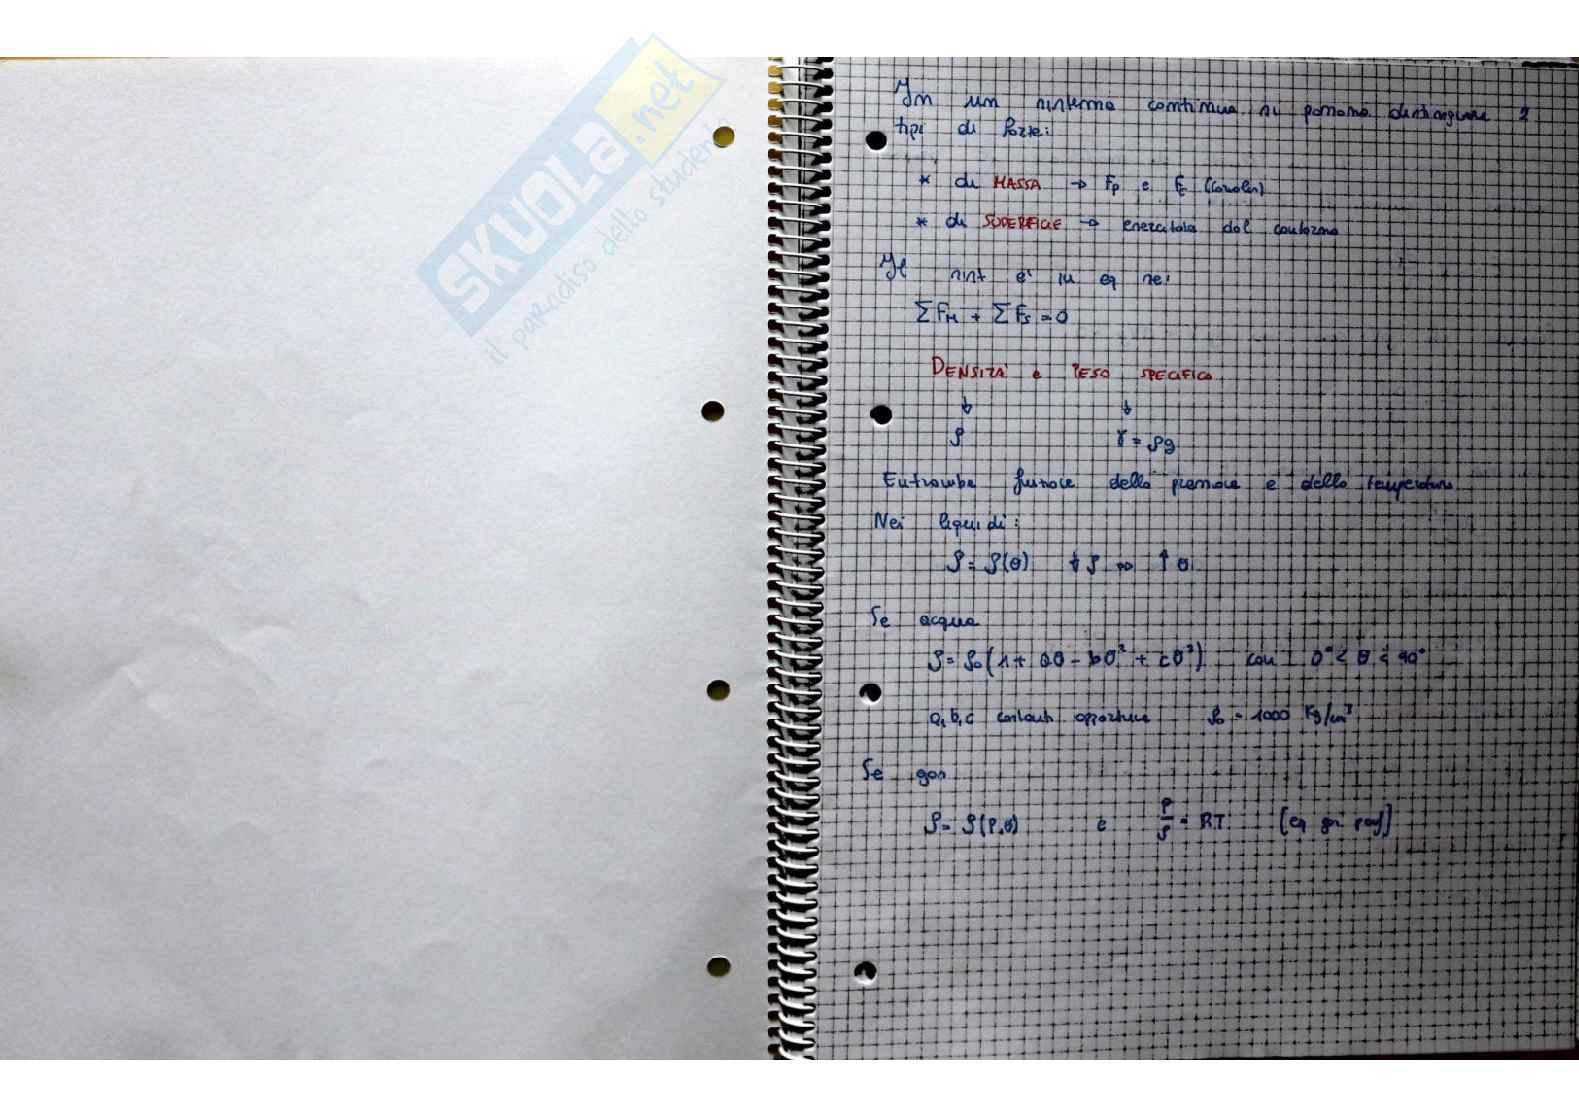 SKUOLA.net
il paradiso dello studente
In un sistema continuo si possono distinguere 2
tipi di forze:
* di MASSA → Fp e Fc (Coriolis)
* di SUPERFICIE → esercitata dal contorno
Il sist è in eq se:
ΣFM + ΣFS = 0
DENSITA' e PESO SPECIFICO
↓ ↓
ρ γ = ρg
Entrambe funzione della pressione e della temperatura
Nei liquidi:
ρ = ρ(θ) ↓ρ ⇔ ↑θ
Se acqua
ρ = ρ0(1 + aθ - bθ² + cθ³) con 0° < θ < 40°
a, b, c costanti opportune ρ0 = 1000 Kg/m³
Se gas
ρ = ρ(P,θ) e P/ρ = RT [eq gas perf]